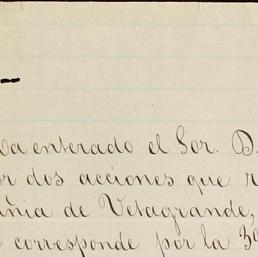 enterado el Sor. D.
dos acciones que
de Vetagrande,
corresponde por la 3ª